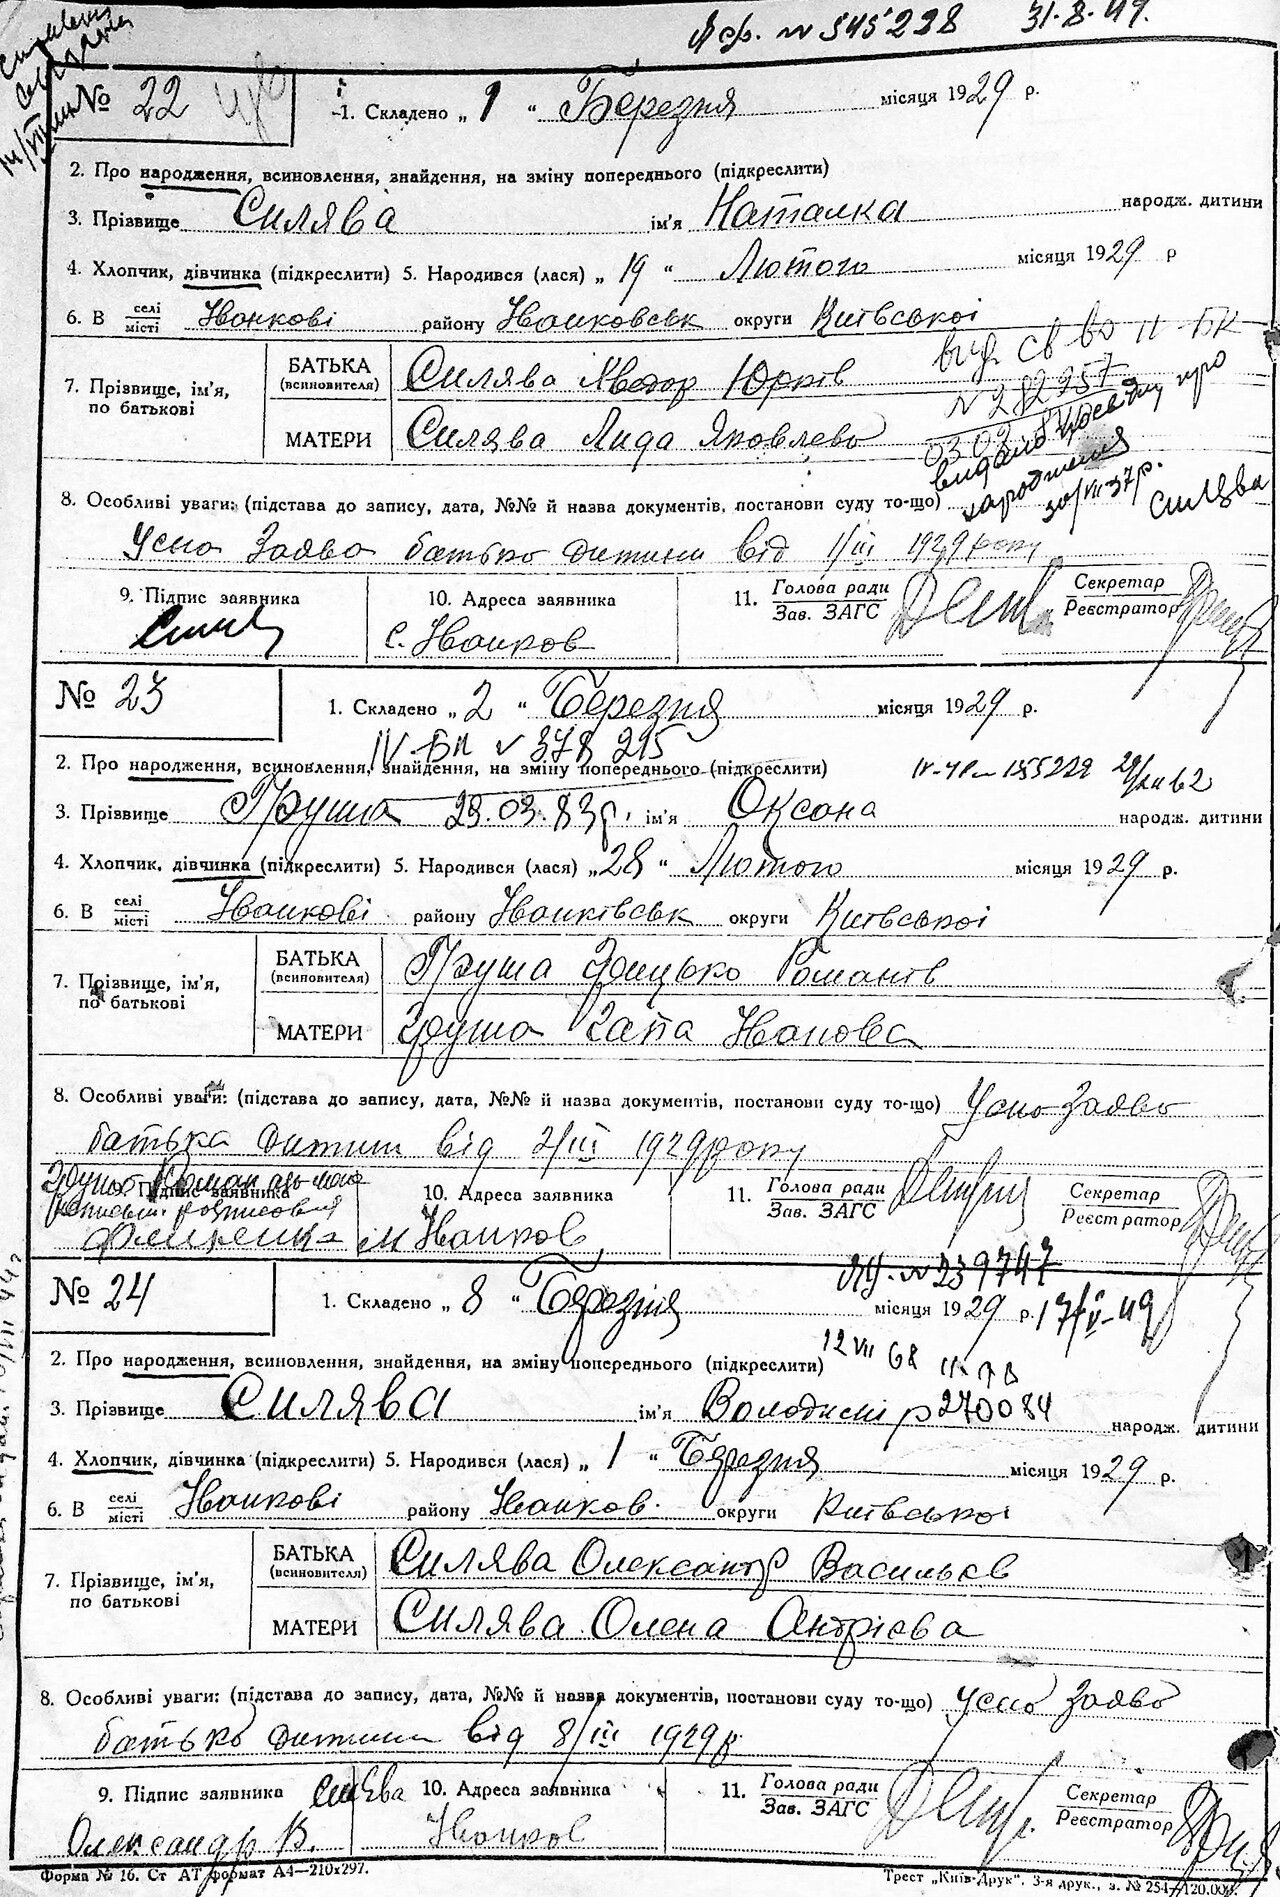 № 545228 31-8-49.
№ 22
1. Складено „ 1 “ Березня місяця 1929 р.
2. Про народження, всиновлення, знайдення, на зміну попереднього (підкреслити)
3. Прізвище Силява ім'я Наталка народж. дитини
4. Хлопчик, дівчинка (підкреслити) 5. Народився (лася) „ 19 “ Лютого місяця 1929 р
6. В селі/місті Іванкові району Іванковськ округи Київської
7. Прізвище, ім'я, по батькові
БАТЬКА (всиновителя) Силява Юрків
МАТЕРИ Силява Лида Яковлева
вид. св во IV-БК
№ 282257
видано про
народження
30/VII 37 р. Силява
8. Особливі уваги: (підстава до запису, дата, №№ й назва документів, постанови суду то-що)
Усна Заява батька дитини від 1/III 1929 року
9. Підпис заявника 10. Адреса заявника 11. Голова ради/Зав. ЗАГС Секретар/Реєстратор
с. Іванков
№ 23
1. Складено „ 2 “ Березня місяця 1929 р.
IV-БК № 378 215
2. Про народження, всиновлення, знайдення, на зміну попереднього (підкреслити)
3. Прізвище Груша 29.03.83р. ім'я Оксана народж. дитини
4. Хлопчик, дівчинка (підкреслити) 5. Народився (лася) „ 28 “ Лютого місяця 1929 р.
6. В селі/місті Іванкові району Іванківськ округи Київської
7. Прізвище, ім'я, по батькові
БАТЬКА (всиновителя) Груша Грицько Романів
МАТЕРИ Груша Гапа Іванова
8. Особливі уваги: (підстава до запису, дата, №№ й назва документів, постанови суду то-що) Усна Заява
батька дитини від 2/III 1929 року
9. Підпис заявника 10. Адреса заявника 11. Голова ради/Зав. ЗАГС Секретар/Реєстратор
м Іванков
№ 239747
№ 24
1. Складено „ 8 “ Березня місяця 1929 р. 17/V-49
2. Про народження, всиновлення, знайдення, на зміну попереднього (підкреслити) 12 VII 68
3. Прізвище Силява ім'я Володимір 270084 народж. дитини
4. Хлопчик, дівчинка (підкреслити) 5. Народився (лася) „ 1 “ Березня місяця 1929 р.
6. В селі/місті Іванкові району Іванков. округи Київської
7. Прізвище, ім'я, по батькові
БАТЬКА (всиновителя) Силява Олександр Васильєв
МАТЕРИ Силява Олена Андрієва
8. Особливі уваги: (підстава до запису, дата, №№ й назва документів, постанови суду то-що) Усна Заява
батька дитини від 8/III 1929 р
9. Підпис заявника Силява 10. Адреса заявника 11. Голова ради/Зав. ЗАГС Секретар/Реєстратор
Олександр В. Іванков
Форма № 16. Ст АТ формат А4—210х297. Трест „Київ-Друк“, 3-я друк., з. № 254—120.000.